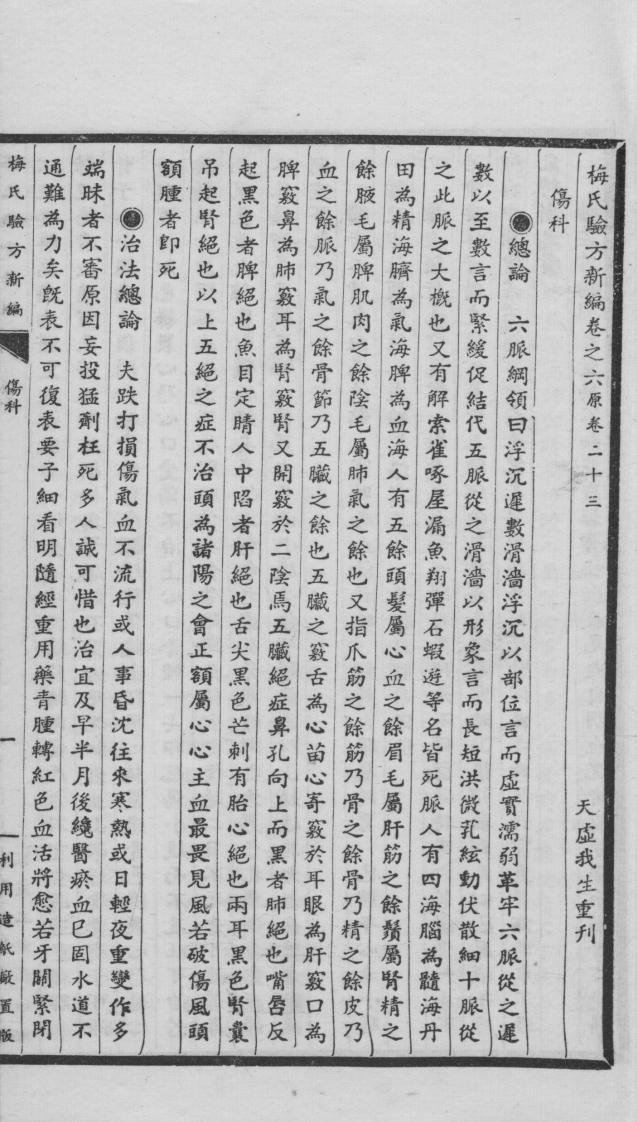 梅氏驗方新編卷之六原卷二十三
天虛我生重刊
傷科
總論　六脈綱領曰浮沉遲數滑濇浮沉以部位言而虛實濡弱革牢六脈從之遲
數以至數言而緊緩促結代五脈從之滑濇以形象言而長短洪微芤絃動伏散細十脈從
之此脈之大槪也又有解索雀啄屋漏魚翔彈石蝦遊等名皆死脈人有四海腦為髓海丹
田為精海臍為氣海脾為血海人有五餘頭髮屬心血之餘眉毛屬肝筋之餘鬚屬腎精之
餘腋毛屬脾肌肉之餘陰毛屬肺氣之餘也又指爪筋之餘筋乃骨之餘骨乃精之餘皮乃
血之餘脈乃氣之餘骨節乃五臟之餘也五臟之竅舌為心苗心寄竅於耳眼為肝竅口為
脾竅鼻為肺竅耳為腎竅腎又開竅於二陰焉五臟絕症鼻孔向上而黑者肺絕也嘴唇反
起黑色者脾絕也魚目定睛人中陷者肝絕也舌尖黑色芒刺有胎心絕也兩耳黑色腎囊
吊起腎絕也以上五絕之症不治頭為諸陽之會正額屬心心主血最畏見風若破傷風頭
額腫者卽死
治法總論　夫跌打損傷氣血不流行或人事昏沈往來寒熱或日輕夜重變作多
端昧者不審原因妄投猛劑枉死多人誠可惜也治宜及早半月後纔醫瘀血已固水道不
通難為力矣旣表不可復表要子細看明隨經重用藥青腫轉紅色血活將愈若牙關緊閉
梅氏驗方新編
傷科
一
利用造紙廠置版